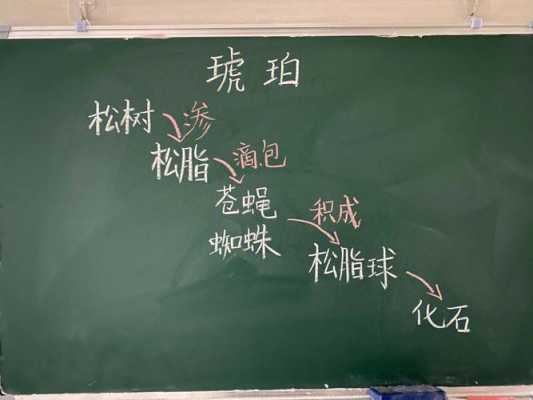 琥珀
松树 渗
松脂 滴.包
苍蝇 积成
蜘蛛
松脂球
化石